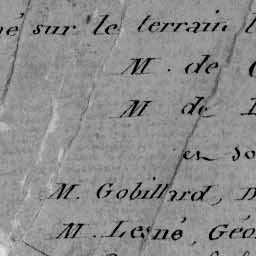 sur le terrain
M. de
M de
M. Gobillard,
M. Lesné, Géo